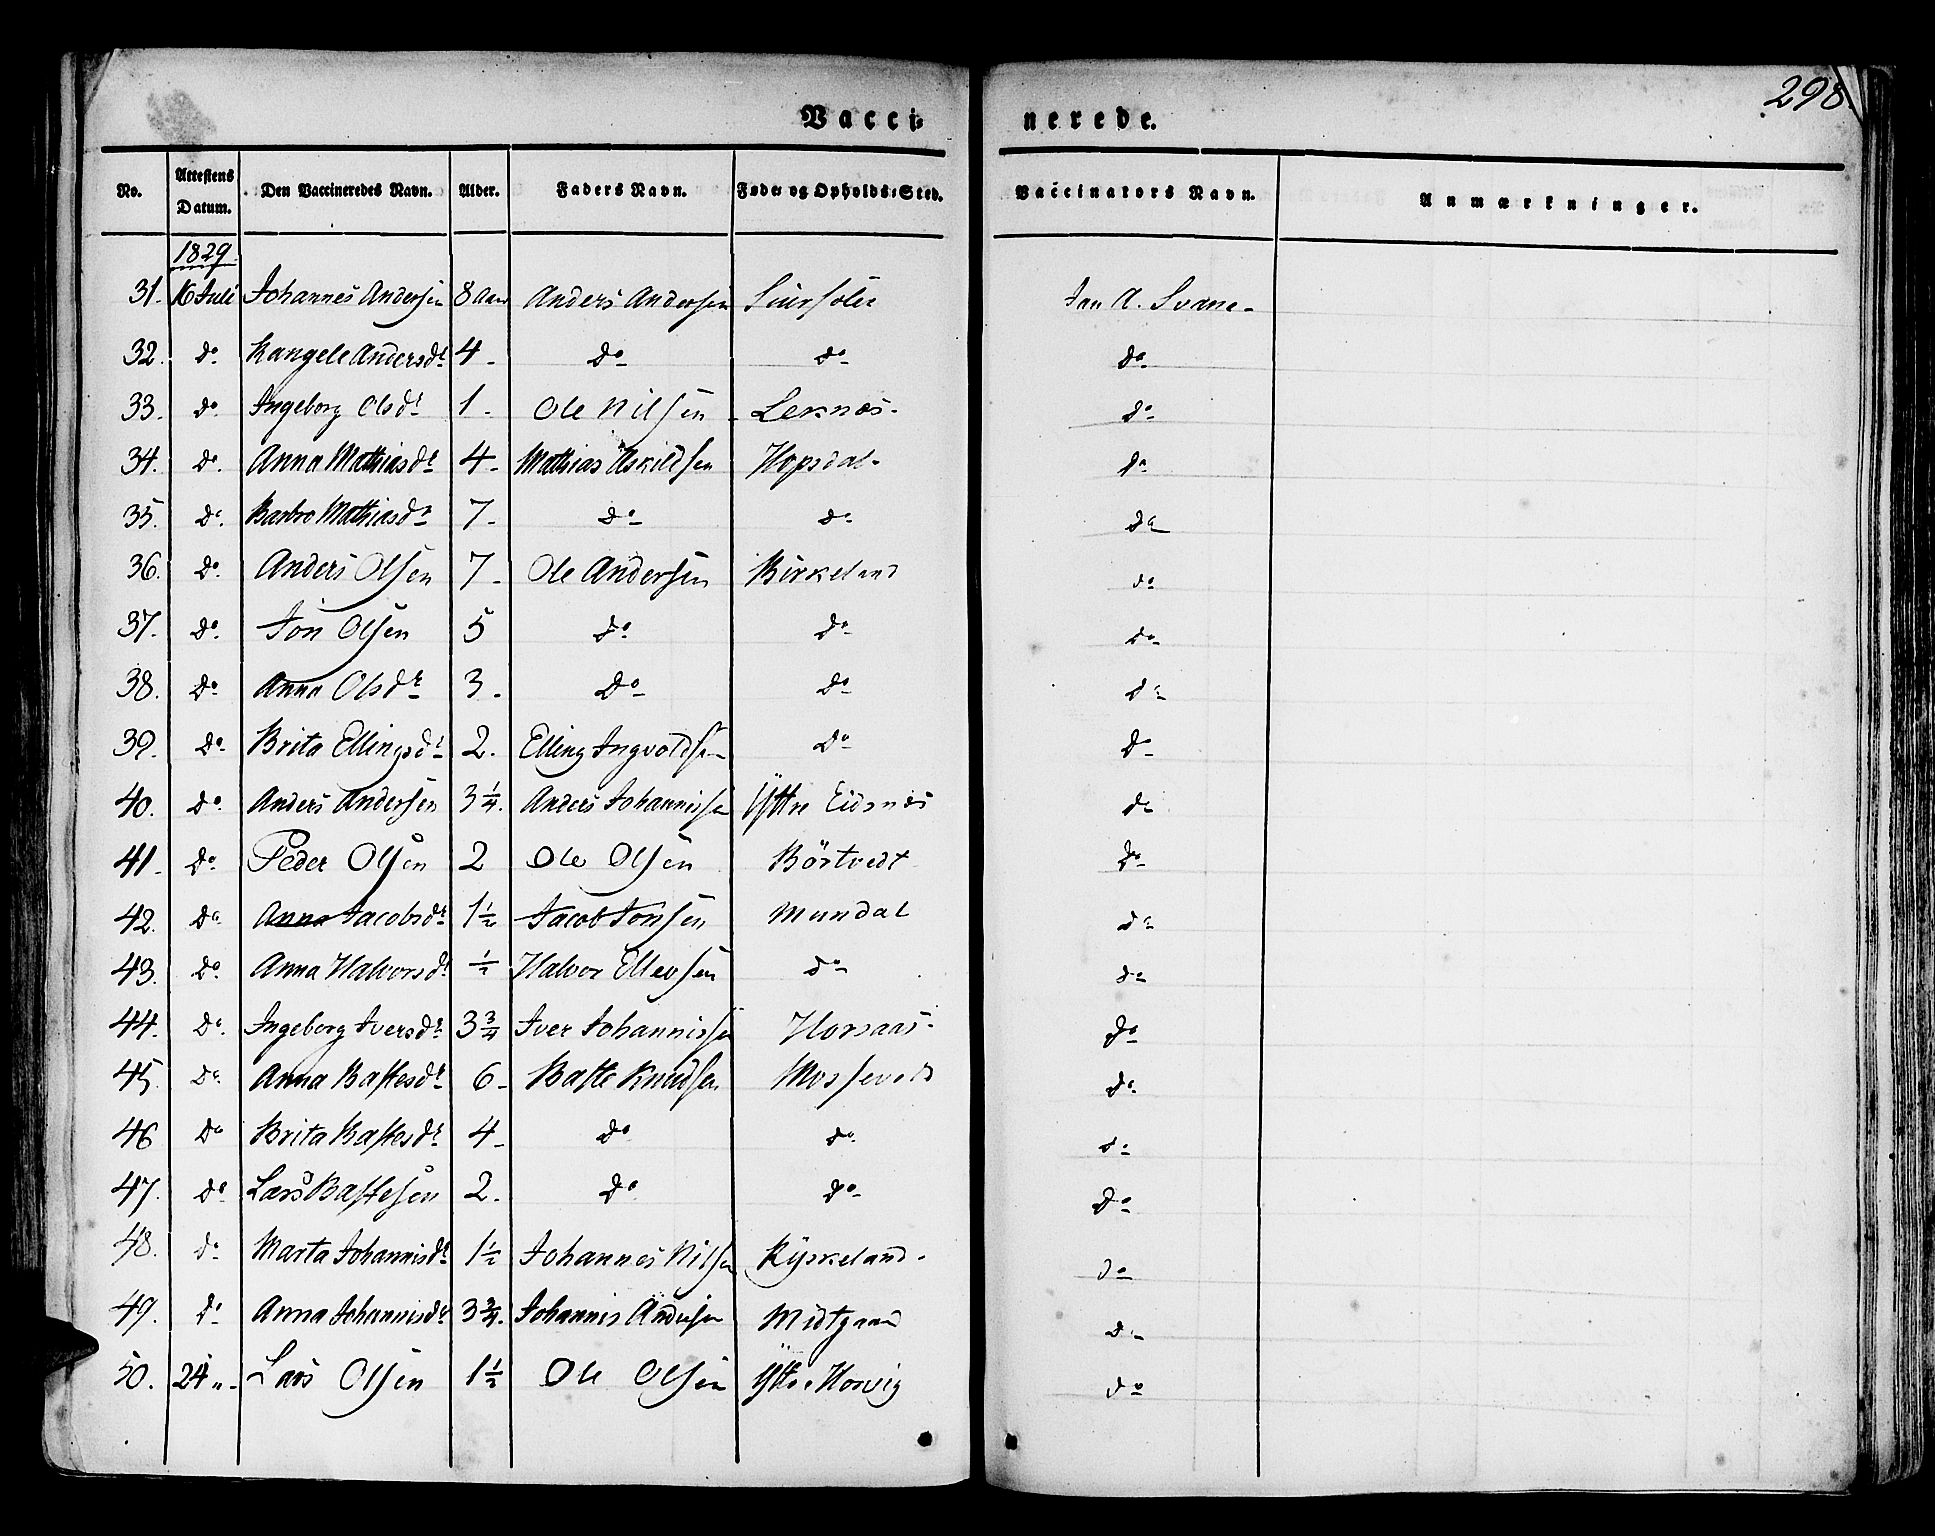 298.
Vacci- nerede.
No. Attestens Datum. Den Vaccineredes Navn. Alder. Faders Navn. Føde- og Opholds-Sted. Vaccinators Navn. Anmærkninger.
1829.
31. 16 Juli Johannes Andersen 8 Aar Anders Andersen Jan A. Svane.
32. do. Rangele Andersdr. 4. do. do. do.
33. do. Ingeborg Olsdr. 1. Ole Nilsen Leknæs. do.
34. do. Anna Mathiasdr. 4. Mathias Askildsen Hopsdal. do.
35. do. Barbro Mathiasdr. 7. do. do. do.
36. do. Anders Olsen 7. Ole Andersen Birkeland do.
37. do. Jon Olsen 5 do. do. do.
38. do. Anna Olsdr. 3. do. do. do.
39. do. Brita Ellingsdr. 2. Elling Ingvoldsen do. do.
40. do. Anders Andersen 3 1/4. Anders Johannissen Yttre Eidsnæs do.
41. do. Peder Olsen 2 Ole Olsen Börtvedt do.
42. do. Anna Jacobsdr. 1 1/2 Jacob Jonsen Mundal do.
43. do. Anna Halvorsdr. 1/2 Halvor Ellevsen do. do.
44. do. Ingeborg Iversdr. 3 3/4 Iver Johannissen Horsaas. do.
45. do. Anna Bastesdr. 6. Baste Knudsen do.
46 do. Brita Bastesdr. 4. do. do. do.
47. do. Lars Bastesen 2. do. do. do.
48. do. Marta Johannisdr. 1 1/2 Johannes Nilsen Rÿskeland. do.
49. do. Anna Johannisdr. 3 3/4. Johannis Andersen Midtgaard do.
50. 24 ". Lars Olsen 1 1/2 Ole Olsen Yttre Horvig do.